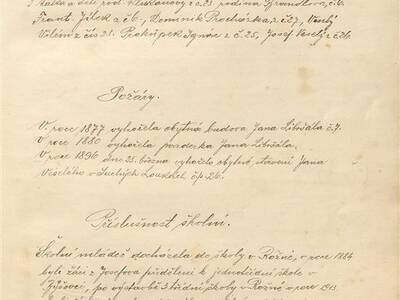 Matka a děti rod. Kluskanovy z č. 23. rodina Šrandlova, č. 6.
Frant. Jílek z č. 6., Dominik Procházka, z č. 27, Veselý
Vilém z čís 28. Prokůpek Ignác z č. 25, Josef Veselý z č. 26.
Požáry.
V roce 1877 vyhořela obytná budova Jana Libšála č. 7.
V roce 1880 vyhořela pazderka Jana Libšála.
V roce 1896 dne 25. března vyhořelo obytné stavení Jana
Veselého v Suchých Loukách čp. 26.
Příslušnost školní.
Školní mládež docházela do školy v Rožné, v roce 1884
byli žáci z Josefova přiděleni k jednotřídní škole v
po výstavbě 3 třídní školy v Rožné v roce 1913